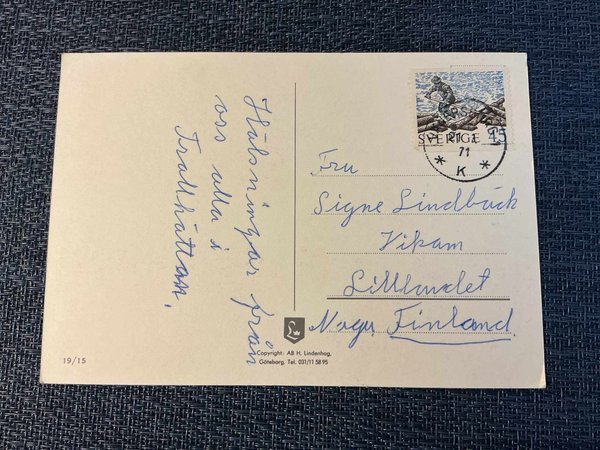 Hälsningar från
oss alla i
Trollhättan.
SVERIGE 45
71
* K *
Fru
Signe Lindbäck
Vikam
Lillandet
Nagu, Finland.
Copyright: AB H. Lindenhag,
Göteborg. Tel. 031/11 58 95
19/15